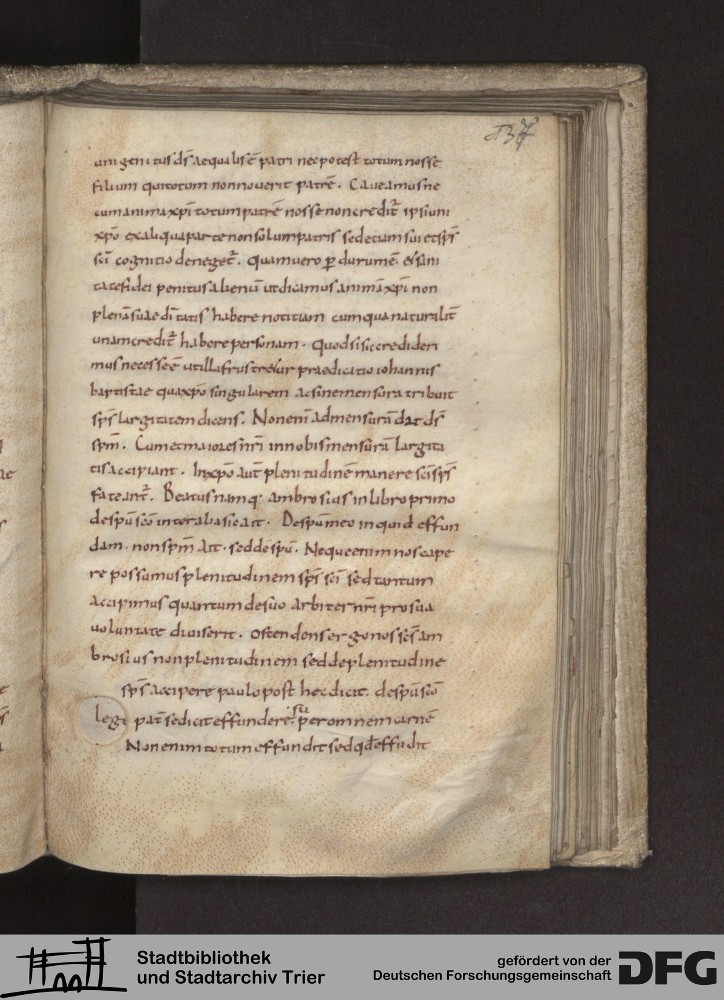 137
unigenitus dš aequalis ē patri nec potest totum nosse
filium qui totum non noverit patrē. Caveamus ne
cum anima xpī totum patrē nosse non credit̄ ipsi uni
xpō ex aliqua parte non solum patris sed etiam sui et spš
scī cognitio denegetr̄. Quam vero p̄ durum ē et sani
tate fidei penitus alienū ut dicamus animā xpī non
plenā suae dītatis habere notitiam cum qua naturalit̄
unam credit̄ habere personam. Quod si sic credideri
mus necesse ē ut illa frustretur praedicatio iohannis
baptistae qua xpō singularem ac sine mensura tribuit
spš largitatem dicens. Non enim̄ ad mensurā dat dš
spm̄. Cum et maiores nr̄i in nobis mensurā largita
tis accipiant. In xpō aut̄ plenitudinē manere scī spš
fateant̄. Beatus namq; ambrosius in libro primo
de spū scō intera basic ait. De spū meo inquid effun
dam. non spm̄ ait. sed de spū. Neque enim nos cape
re possumus plenitudinem spš scī sed tantum
accipimus quantum de suo arbiter nr̄i pro sua
voluntate diviserit. Ostendens ergo nos scš am
brosius non plenitudinem sed de plenitudine
spš accipere paulo post hec dicit. de spū scō
legi pat̄ se dicit effundere sup̄ omnem carnē
Non enim totum effundit sed qd̄ effudit
Stadtbibliothek
und Stadtarchiv Trier
gefördert von der
Deutschen Forschungsgemeinschaft
DFG